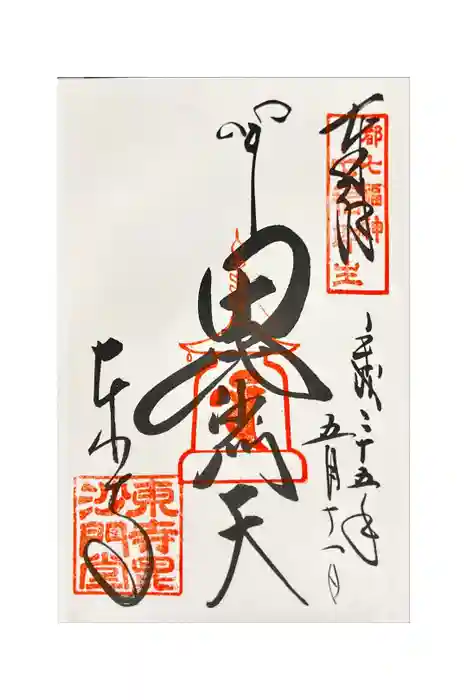 奉拝
都七福神
平成二十五年
五月
毘沙門天
東寺
東寺毘
沙門堂